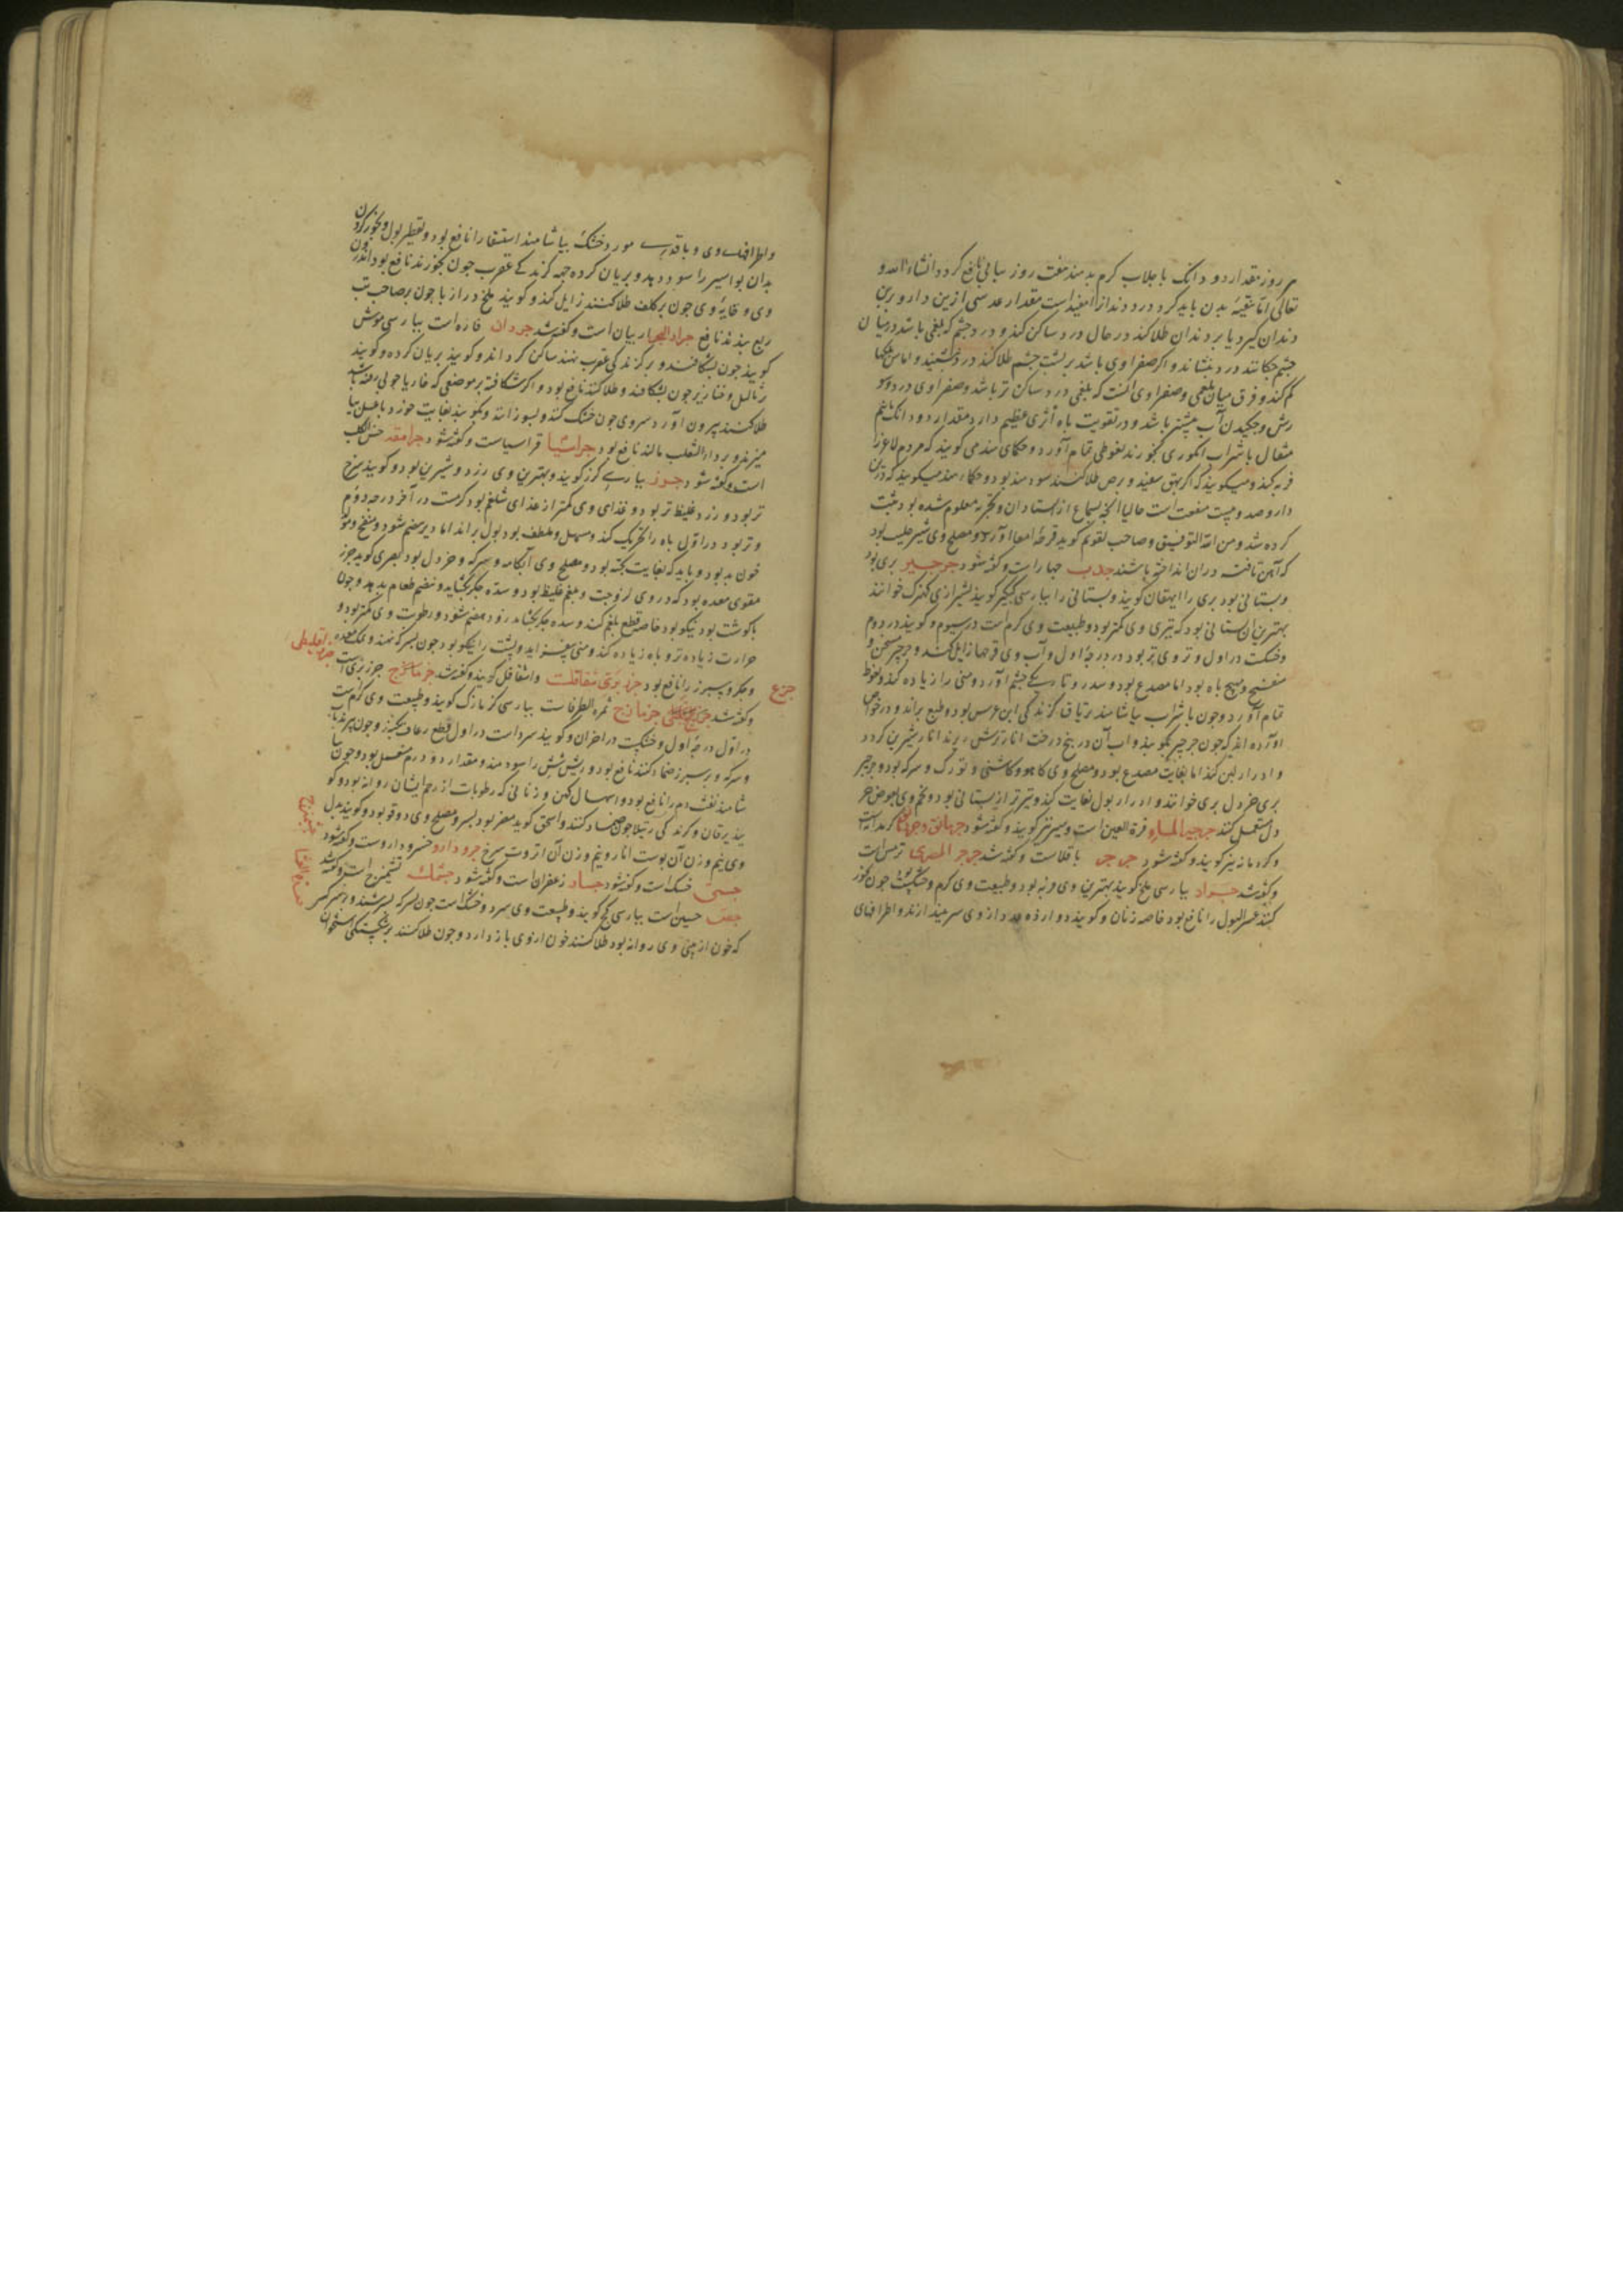 هر روز مقدار دو دانک با جلاب کرم بدهند هفت روز پیاپی نافع کردد انشاءالله و
تعالی اما تنقیهٔ بدن باید کرد و درد دندانرا مفیدست مقدار عدسی ازین دارو برین
دندان کیرد یا بر دندان طلا کند در حال درد ساکن کند و درد چشم که بلغمی باشد در میان
چشم چکانند درد بنشاند و اکر صفراوی باشد بر پشت چشم طلا کند درد بنشیند و اماس
کم کند و فرق میان بلغمی و صفراوی آنست که بلغمی درد ساکن تر باشد و صفراوی درد و سو
زش و چکیدن آب بیشتر باشد و در تقویت باه اثری عظیم دارد مقدار دو دانک نیم
مثقال با شراب انکوری بخورند نعوظی تمام آورد و حکمای هند می کویند که مردم لاغر را
فربه کند و میکویند که اکر بر بهق سفید و برص طلا کنند سودمند بود و حکماء هند میکویند که درین
دارو صد و بیست منفعت است حالیا آنچه بسماع از استادان و تجربه معلوم شده بود ثبت
کرده شد و من الله التوفیق و صاحب تقویم کوید قرحهٔ امعا آورد و مصلح وی شیر حلیب بود
که آهن تافته در آن انداخته باشند جدب جمارات و کفته شود جرجیر بری بود
و بستانی بود بری را ایهقان کویند و بستانی را بپارسی کیکیر کویند بشیرازی کهنرک خوانند
بهترین آن بستانی بود که تیزی وی کمتر بود و طبیعت وی کرم است در سیوم و کویند در دوم
و خشکست در اول و تروی تر بود در درجهٔ اول و آب وی قرحها زایل کند و جرجیر مسخن و
منضج و مهیج باه بود اما مصدع بود و سدر و تاریکی چشم آورد و منی را زیاده کند و نعوظ
تمام آورد و چون با شراب بیاشامند تریاق کزندکی ابن عرس بود و طبع براند و در خواص
آورده اند که چون جرجیر بکوبند و آب آن در بیخ درخت انار ترش ریزند انار شیرین کردد
و ادرار لبن کند اما بغایت مصدع بود و مصلح وی کاهو و کاسنی و تورک و سرکه بود و جرجیر
بری خردل بری خوانند و ادرار بول بغایت کند و تیزتر از بستانی بود و تخم وی بعوض خر
دل مستعمل کنند جرجیر الماء قرة العین است و سیر نیز کویند و کفته شود جرمانق و جرمانک کرمدانه است
و کرد مانه نیز کویند و کفته شود جرجر باقلاست و کفته شد جرجر المصری ترمس است
و کفته شد جراد بپارسی ملخ کویند بهترین وی فربه بود و طبیعت وی کرم و خشکست چون بخور
کنند عسر البول را نافع بود خاصه زنان و کویند دوازده عدد از وی سر بیندازند و اطرافهای
و اطرافهاء وی و با قدری مورد خشک بیاشامند استسقا را نافع بود و تقطیر بول و بخور کردن
بدان بواسیر را سود دهد و بریان کرده جهة کزندکی عقرب چون بخورند نافع بود
وی و خایهٔ وی چون بر کلف طلا کنند زایل کند و کویند ملخ دراز پا چون بر صاحب تب
ربع بندند نافع جراد البحر اربیان است و کفته شد جردان فاره است بپارسی موش
کویند چون بشکافند و بر کزندکی عقرب نهند ساکن کرداند و کویند بریان کرده و کویند
ثالیل و خنازیر چون بشکافند و طلا کنند نافع بود و اکر شکافته بر موضعی که خار یا چوبی رفته باشد
طلا کنند بیرون آورد و سر وی چون خشک کنند و بسوزانند و بکوبند بغایت خورد با عسل بیا
میزند و بر داء الثعلب مالند نافع بود جراسیا قراسیاست و کفته شود جرامقه خس الکلب
است و کفته شود جزر بپارسی کزر کویند و بهترین وی زرد و شیرین بود و کویند سرخ
تر بود و زرد غلیظ تر بود و غذای وی کمتر از غذای شلغم بود کرمست در آخر درجه دوم
و تر بود در اول باه را تحریک کند و مسهل و ملطف بود بول براند اما دیر هضم شود و منفخ و مولد
خون بد بود و باید که بغایت پخته بود و مصلح وی آبکامه و سرکه و خردل بود بصری کوید جزر
مقوی معده بود که در وی لزوجت و بلغم غلیظ بود و سده جکر بکشاید و هضم طعام بدهد و چون
با کوشت بود نیکو بود خاصه قطع بلغم کند و سده جکر بکشاید زود هضم شود و رطوبت وی کمتر بود و
حرارت زیاده تر و باه زیاده کند و منی بیفزاید و پشت را نیکو بود چون بسرکه نهند و نمک معده
و جکر و سپرز را نافع بود جزر بری شقاقل است و اشقاقل کویند و کفته شد جزر بری است
و کفته شد جزمازج ثمرة الطرفاست بپارسی کزمازک کویند و طبیعت وی کرم است
در اول درجه اول و خشکست در آخر آن و کویند سردست در اول قطع رعاف بکند و چون بپزند با
و سرکه و بر سپرز ضماد کنند نافع بود و ریش شش را سودمند و مقدار دو درم مسهل بود و چون بیا
شامند نفث دم را نافع بود و اسهال کهن و زنانی که رطوبات از رحم ایشان روانه بود و کو
یند یرقان و کزندکی رتیلا چون ضماد کنند و اسحق کوید مضر بود بسر و مصلح وی دوقو بود و کویند بدل
وی نیم وزن آن پوست انار و نیم وزن آن انزروت سرخ جزو دارو خسرو دارو است و کفته شود
خسک است و کفته شود جساد زعفران است و کفته شود جشمک تشمیزج است و کفته شد
جص جبسین است بپارسی کچ کویند و طبیعت وی سرد و خشک است چون بسرکه بسرشند و بر سر کسی
که خون از بینی وی روانه بود طلا کنند خون از وی باز دارد و چون طلا کنند بر شکستکی استخوان
جزع